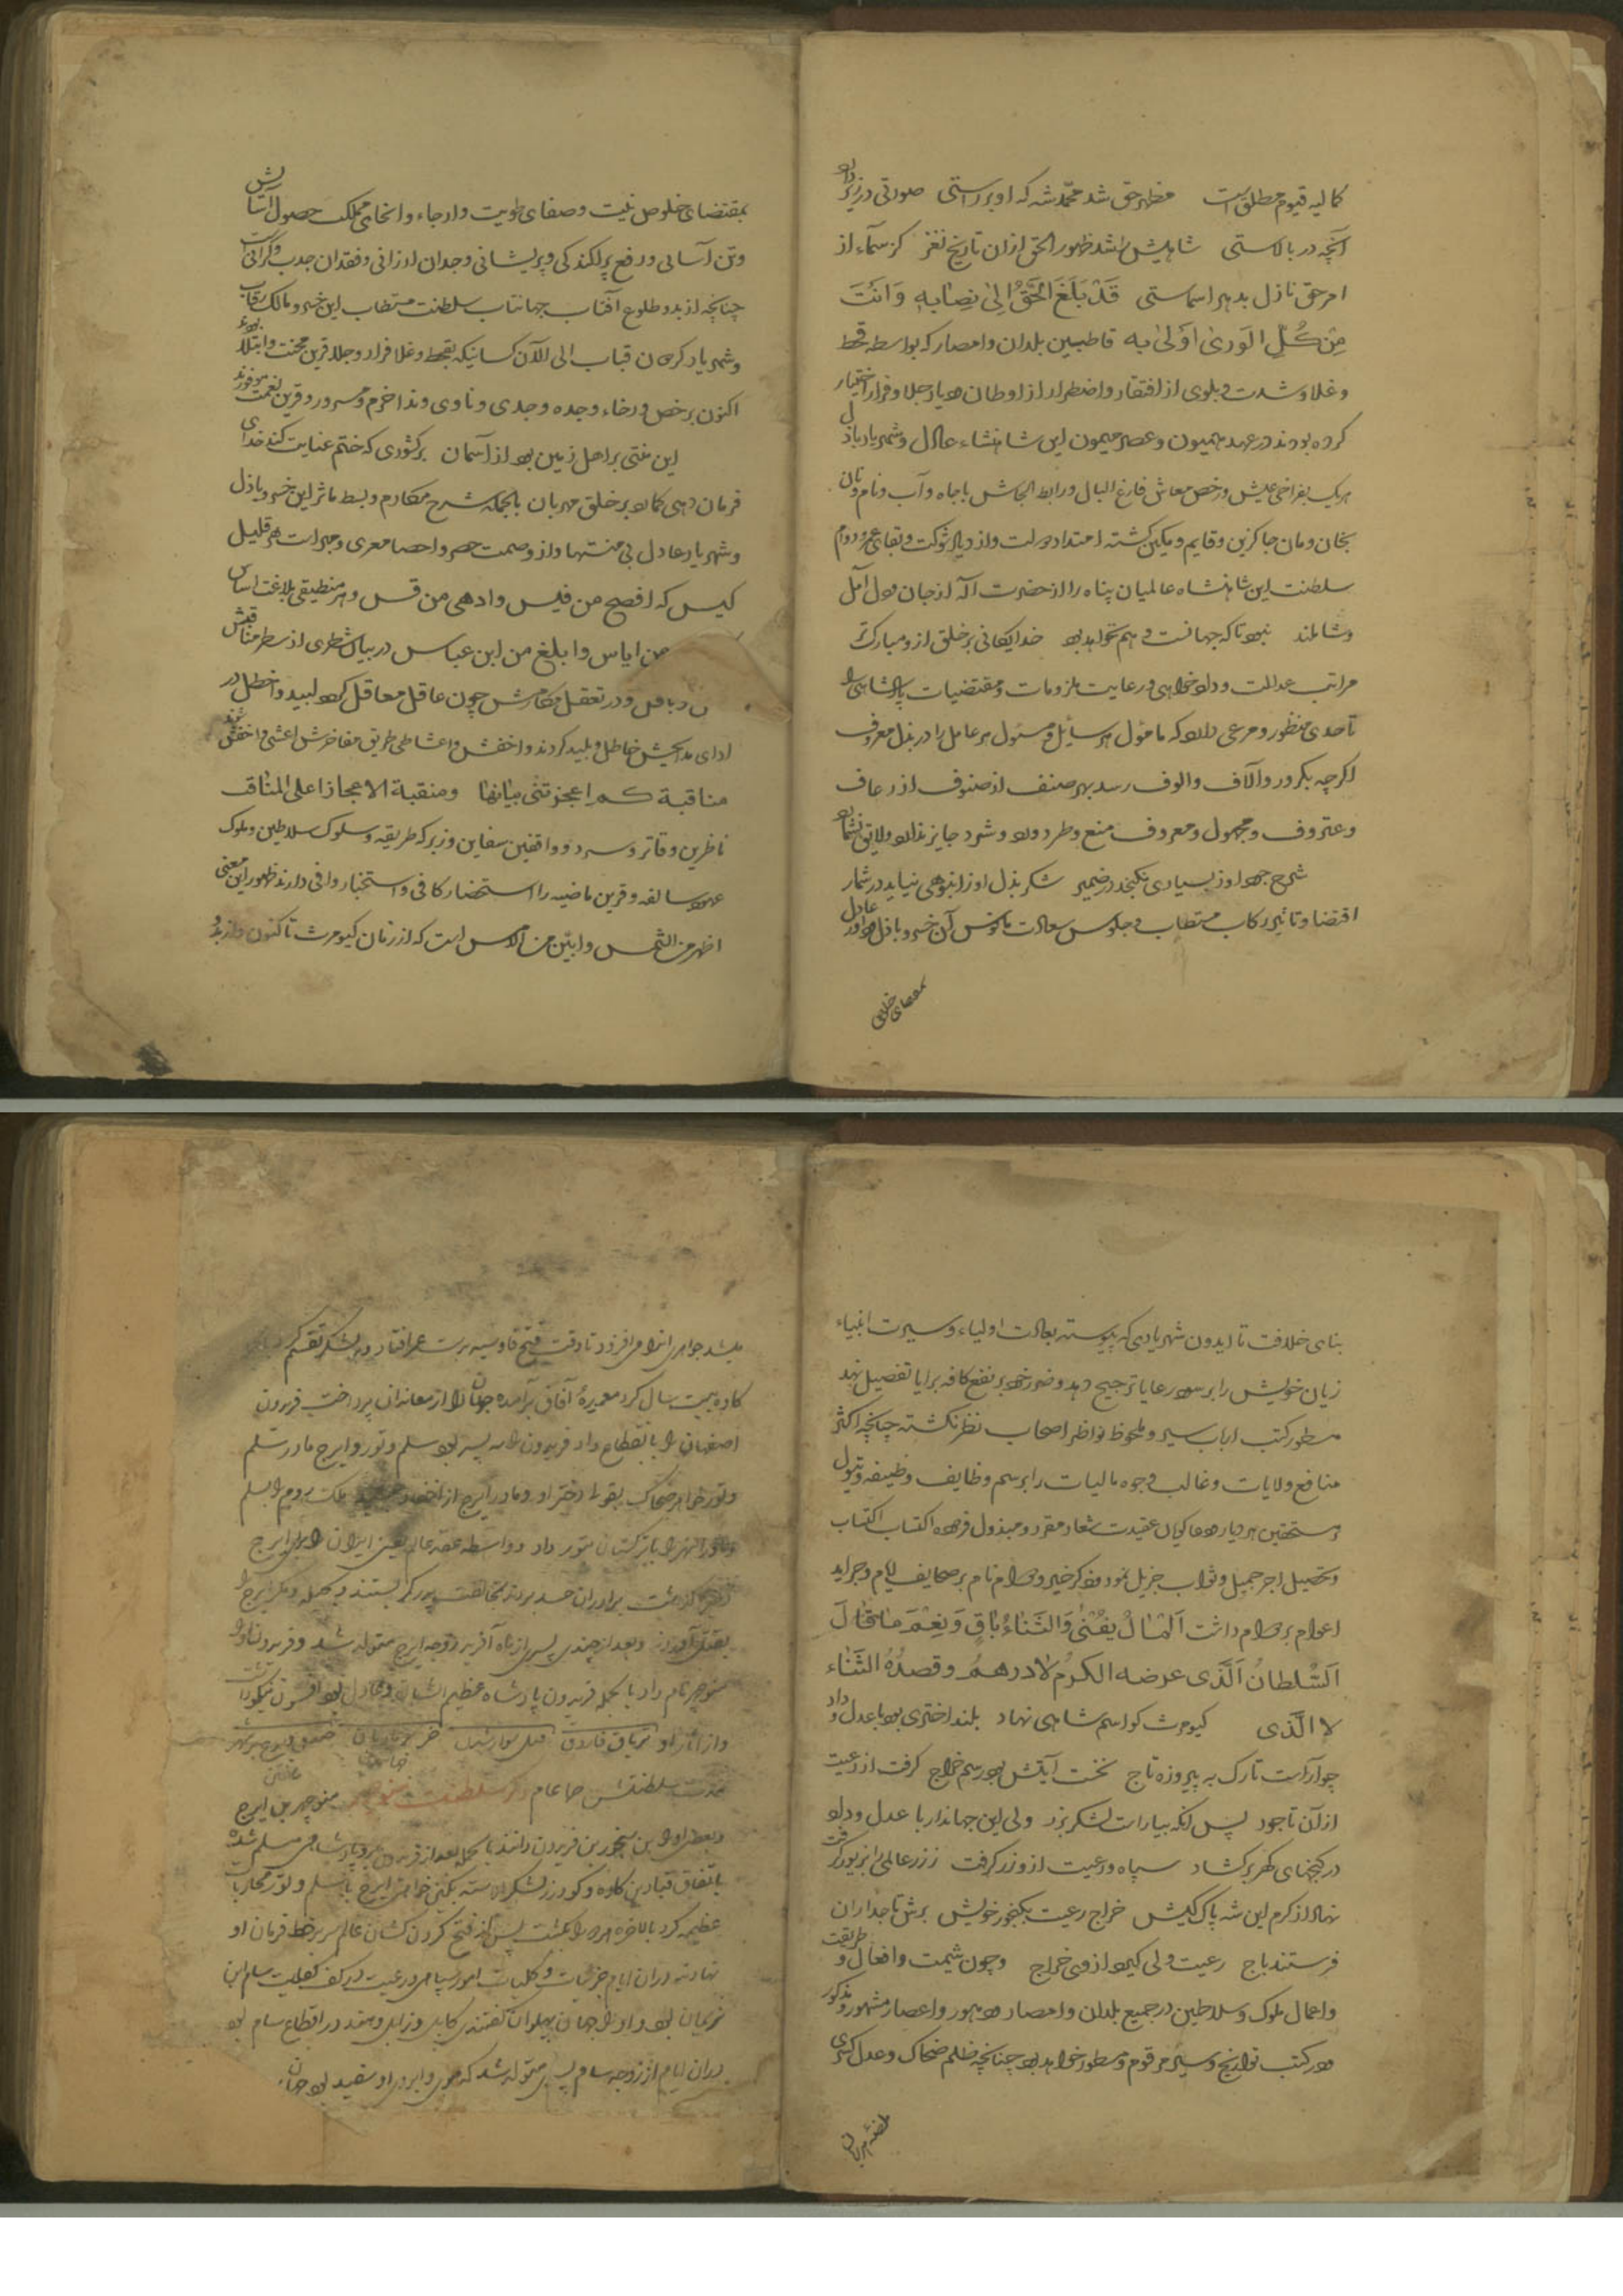 کمالیه قیوم مطلق است مظهر حق شد محمد شه که او بر راستی صورتی در زیر دارد
آنچه در بالاستی شاهیش را شد ظهور الحق ازان تاریخ نغز کز سماء از
امر حق نازل بدهر اسماستی قَدْ بَلَغَ الْحَقُّ اِلیٰ نِصٰابِهِ وَ اَنْتَ
مِنْ کُلِّ الْوَریٰ اَوْلیٰ بِه قاطبین بلدان و امصار که بواسطه قحط
و غلا و شدت و بلوی از افتقار و اضطرار از اوطان دیار جلا و فرار اختیار
کرده بودند در عهد همیون و عصر میمون این شاهنشاه عادل و شهریار باذل
هریک بفراخی عیش و رخص معاش فارغ البال و رابط الجاش باجاه و آب و نام و نان
بخان و مان جاکزین و قایم و مکین کشته امتداد دولت و ازدیاد شوکت و بقای عمر و دوام
سلطنت این شاهنشاه عالمیان پناه را از حضرت آله از جان و دل آمل
و شاملند نبود تا که جهانست و هم نخواهد بود خدایکانی بر خلق ازو مبارکتر
مراتب عدالت و دادخواهی و رعایت ملزومات و مقتضیات پادشاهی را
تا حدی منظور و مرعی دارد که مامول هر سایل و مسئول هر عامل را در بذل معروف
اکرچه بکرور و آلاف و الوف رسد بهر صنف از صنوف از رعاف
و عتروف و مجهول و معروف منع و طرد و رد و شرد جایز نداند و لایق نشمارد
شرح جود او ز بسیاری نکنجد در ضمیر شکر بذل او ز انبوهی نیاید در شمار
اقتضا و تاثیر رکاب مستطاب و جلوس سعادت مانوس آن خسرو باذل و داور عادل
بمقتضای خلوص
بمقتضای خلوص نیت و صفای طویت و ارجاء و انحای مملکت حصول آسایش
و تن آسانی و رفع پراکندکی و پریشانی و وجدان ارزانی و فقدان جدب و کرانی است
چنانچه از بدو طلوع آفتاب جهانتاب سلطنت مستطاب این خسرو مالک رقاب
و شهریار کردون قباب الی الآن کسانیکه بقحط و غلا فرار و جلا قرین محنت و ابتلا بودند
اکنون برخص و رخاء و جده و جدی و ناوی و ندا خرم و مسرور و قرین نعمت موفورند
این منتی بر اهل زمین بود از آسمان بر کشوری که ختم عنایت کند خدای
فرمان دهی کمارد بر خلق مهربان بالجمله شرح مکارم و بسط ماثر این خسرو باذل
و شهریار عادل بی منتها و از وصمت حصر و احصا معری و مبراست هر قلیل
کیس که افصح من قیس و ادهی من قس و هر منطیقی بلاغت اساس
من ایاس و ابلغ من ابن عباس در بیان شطری از سطر مناقبش
و باقل و در تعقل مکارمش چون عاقل معاقل کردد لبید و اخطل در
ادای مدایحش خاطل و بلید کردند و اخفش و اعشا طی طریق مفاخرش اعشی و اخفش شوند
مناقبة کم اعجزتنی بیٰانهٰا و منقبة الاعجاز اعلی المنٰاقب
ناظرین دفاتر و سرد و واقفین سفاین و زبر که طریقه و سلوک سلاطین و ملوک
عهود سالفه و قرین ماضیه را استحضار کافی و استخبار وافی دارند ظهور این معنی
اظهر من الشمس و ابین من الامس است که از زمان کیومرث تا کنون و از بدو
بنای خلافت تا ایدون شهریاری که پیوسته بعادت اولیاء و سیرت انبیاء
زیان خویش را بر سود رعایا ترجیح دهد و ضرر خود بر نفع کافه برایا تفضیل نهد
مسطور کتب ارباب سیر و ملحوظ نواظر اصحاب نظر نکشته چنانچه اکثر
منافع ولایات و غالب وجوه مالیات را برسم وظایف و وظیفه و تیول
مستحقین هر دیار و دعاکویان عقیدت شعار مقرر و مبذول فرموده اکتساب
و تحصیل اجر جمیل و ثواب جزیل نموده ذکر خیر و دوام نام بر صحایف ایام و جراید
اعوام بر دوام داشت اَلْمٰالُ یَفْنیٰ وَ الثَّنٰاءُ بٰاقٍ وَ نِعْمَ مٰا قٰالَ
اَلسُّلطانُ اَلَّذی عرضه الکرمُ لا درهمُ و قصدُهُ الثَّنٰاء
لا الَّذی کیومرث کو اسم شاهی نهاد بلند اختری بود با عدل و داد
چو آراست تارک به پیروزه تاج نخست آیتش بود رسم خراج کرفت از رعیت
ازان تا جود پس آنکه بیاراست لشکر بزد ولی این جهاندار با عدل و داد
در کنجهای کهر برکشاد سپاه و رعیت ازو زر کرفت ز زر عالمی را بزیور کرفت
نهاد از کرم این شه پاک کیش خراج رعیت بکنجور خویش برش تاجداران
فرستند باج رعیت ولی کیرد از وی خراج و چون شیمت و افعال و طریقت
و اعمال ملوک و سلاطین در جمیع بلدان و امصار و دهور و اعصار مشهور و مذکور
و در کتب تواریخ و سیر مرقوم و مسطور خواهد بود چنانچه ظلم ضحاک و عدل کسری
میشد جواهر انرا می افزود تا وقت فتح قادسیه بدست عمر افتاد و بر لشکر تقسیم کرد
کاوه بیست سال کرد معموره آفاق برآمده جهان را از معاندان پرداخت فریدون
اصفهان را باقطاع داد فریدون را سه پسر بود سلم و تور و ایرج مادر سلم
و تور خواهر ضحاک بقولی دختر او و مادر ایرج از احفاد ملک روم را بسلم
و ماوراء النهر را با ترکستان بتور داد و واسطه عقد عالم یعنی ایران را برای ایرج
کذاشت برادران حسد بردند بمخالفت پدر کمر بستند
بقتل آوردند و بعد از چندی پسری از ماه آفرید زوجه ایرج متولد شد و فریدون او را
منوچهر نام داد بالجمله فریدون پادشاه عظیم الشان و عادل بود افسون نیکو دانست
و از آثار او تریاق فاروق
مدت سلطنتش پانصد عام ذکر سلطنت منوچهر منوچهر بن ایرج
و بعضی او را بن پشنجور بن فریدون دانند بالجمله بعد از فریدون برو پادشاهی مسلم شد
باتفاق قباد بن کاوه و کودرز لشکر آراسته بکین خواهی ایرج با سلم و تور محاربات
عظیمه کرد بالاخره هردو را بکشت پس از فتح کردن کشان عالم سر بر خط فرمان او
نهادند دران ایام جزئیات و کلیات امور سپاهی و رعیت در کف کفایت سام ابن
نریمان بود و او را جهان پهلوان کفتندی کابل و زابل و هند در اقطاع سام بود
دران ایام از زوجه سام پسری متولد شد که موی و ابروی او سفید بود